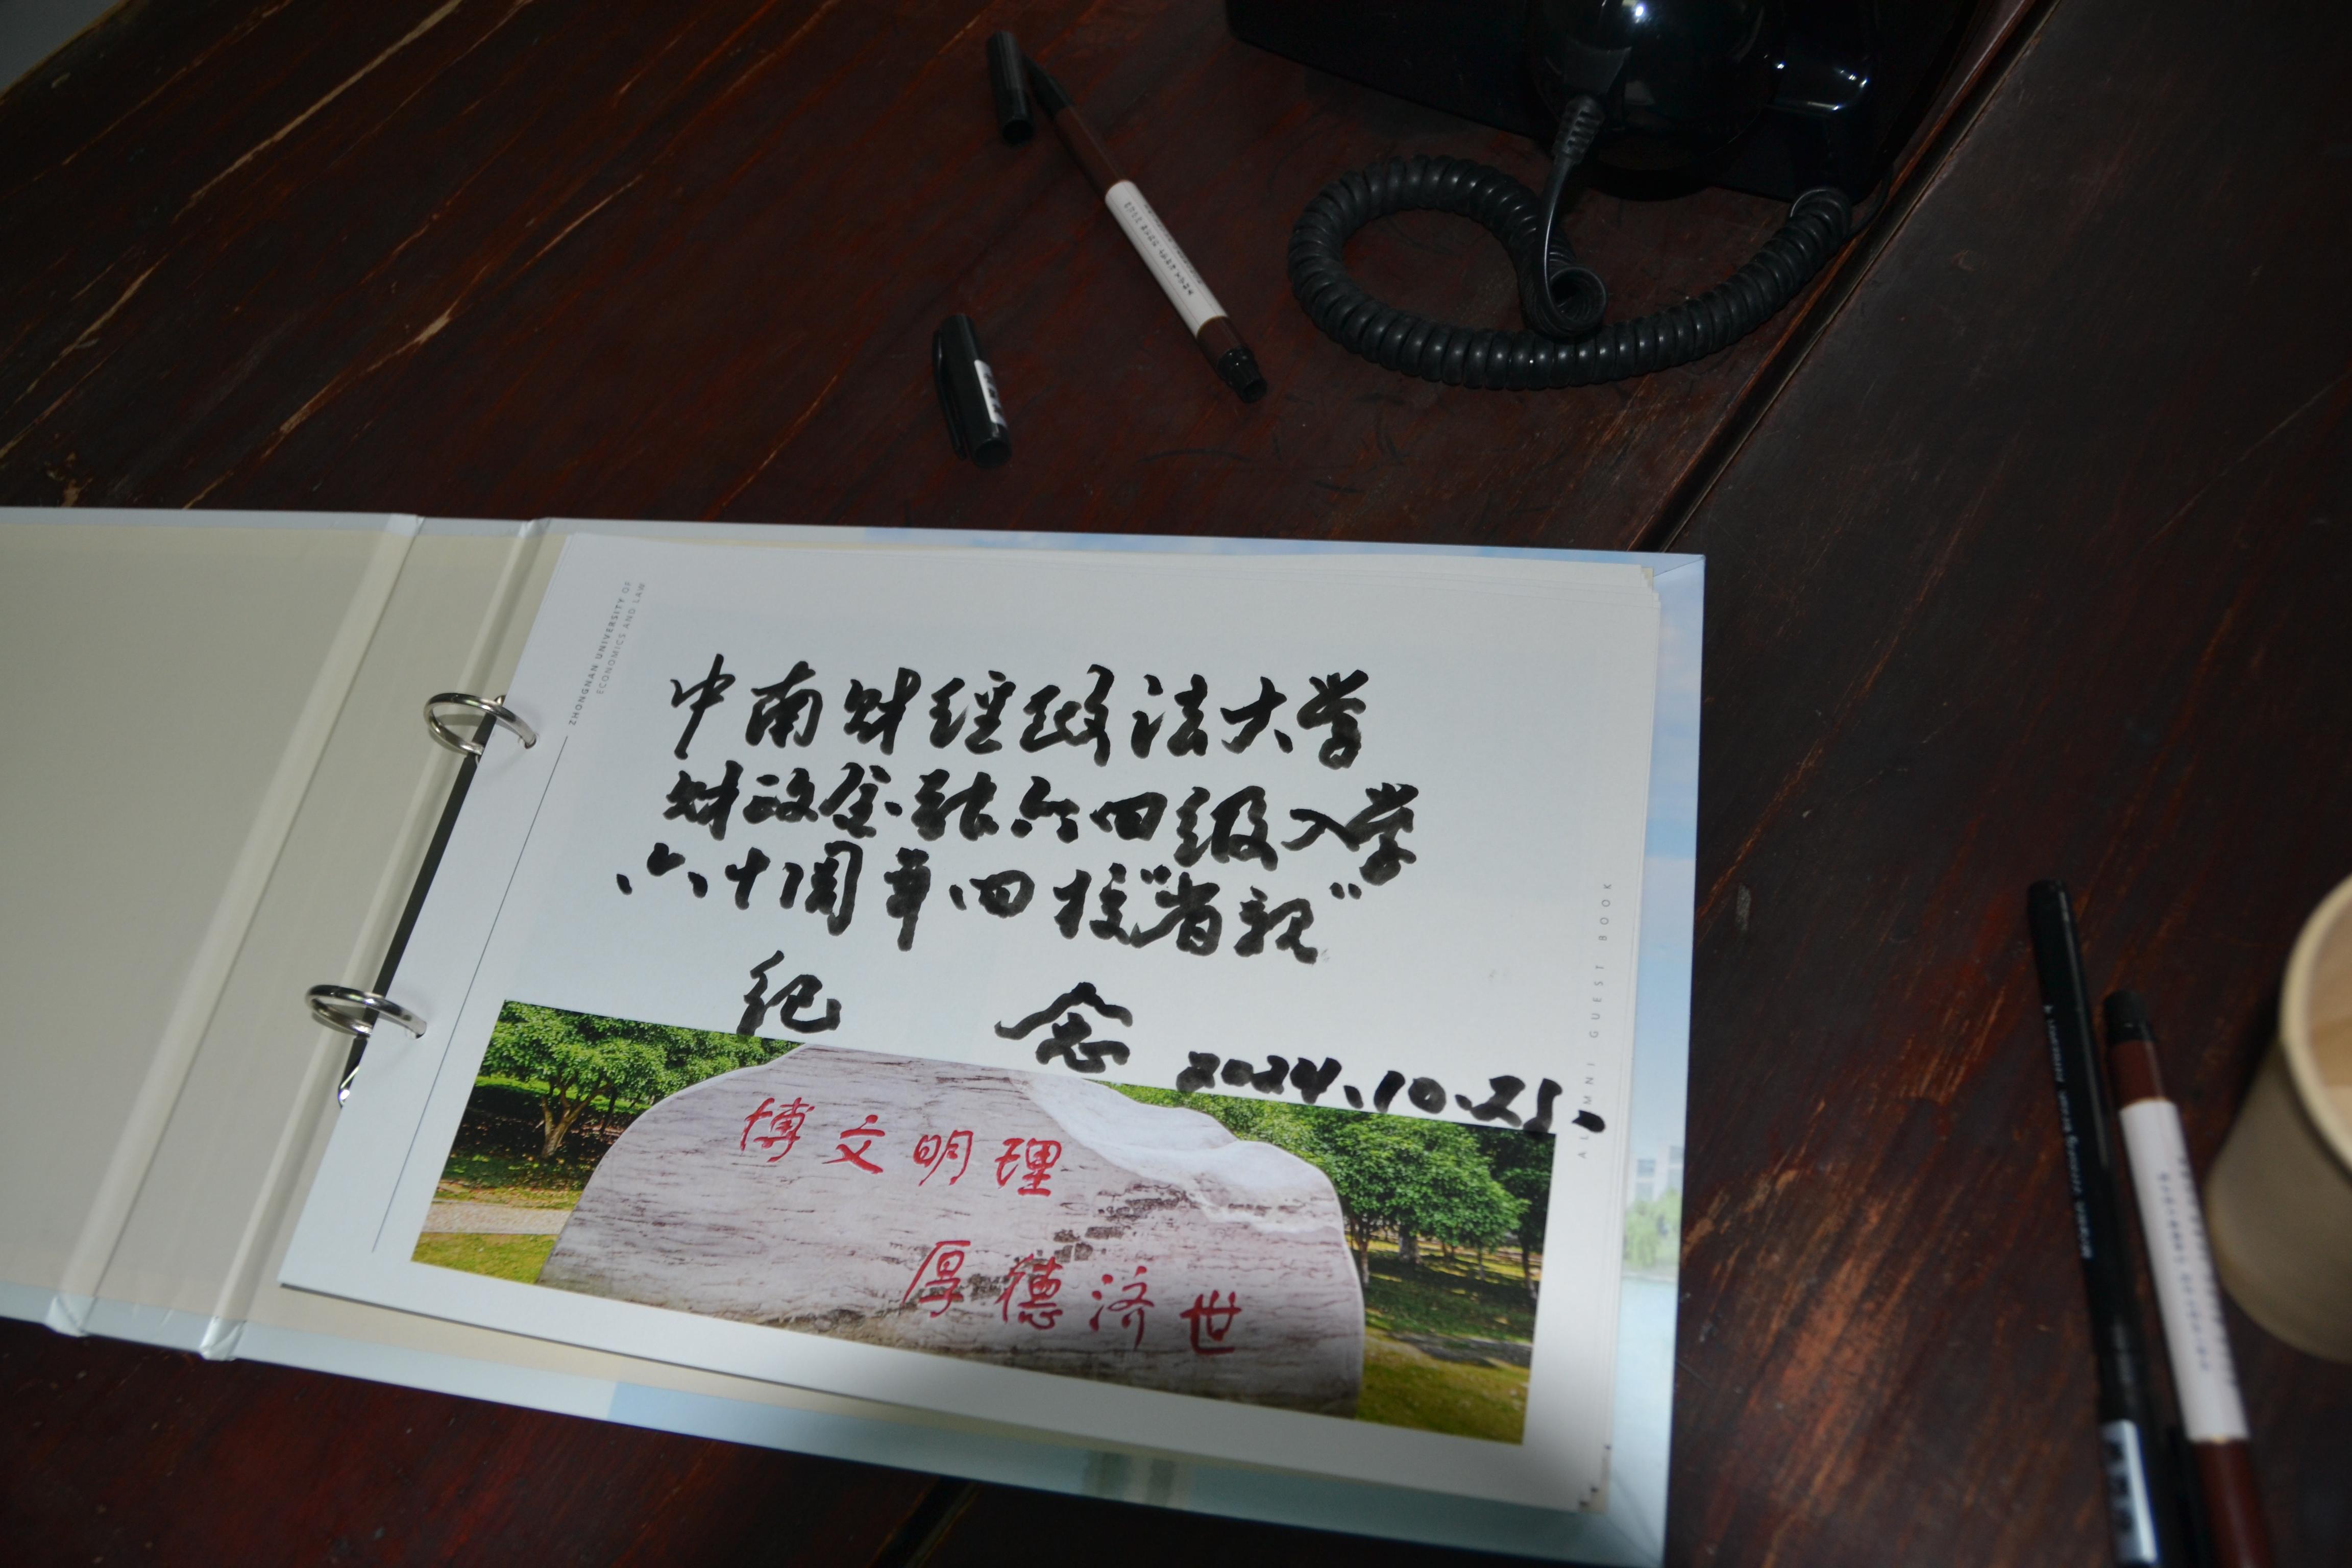 ZHONGNAN UNIVERSITY OF
ECONOMICS AND LAW
中南财经政法大学
财政金融六四级入学
六十周年回校“省亲”
纪 念
2024.10.25.
博文明理
厚德济世
ALUMNI GUEST BOOK